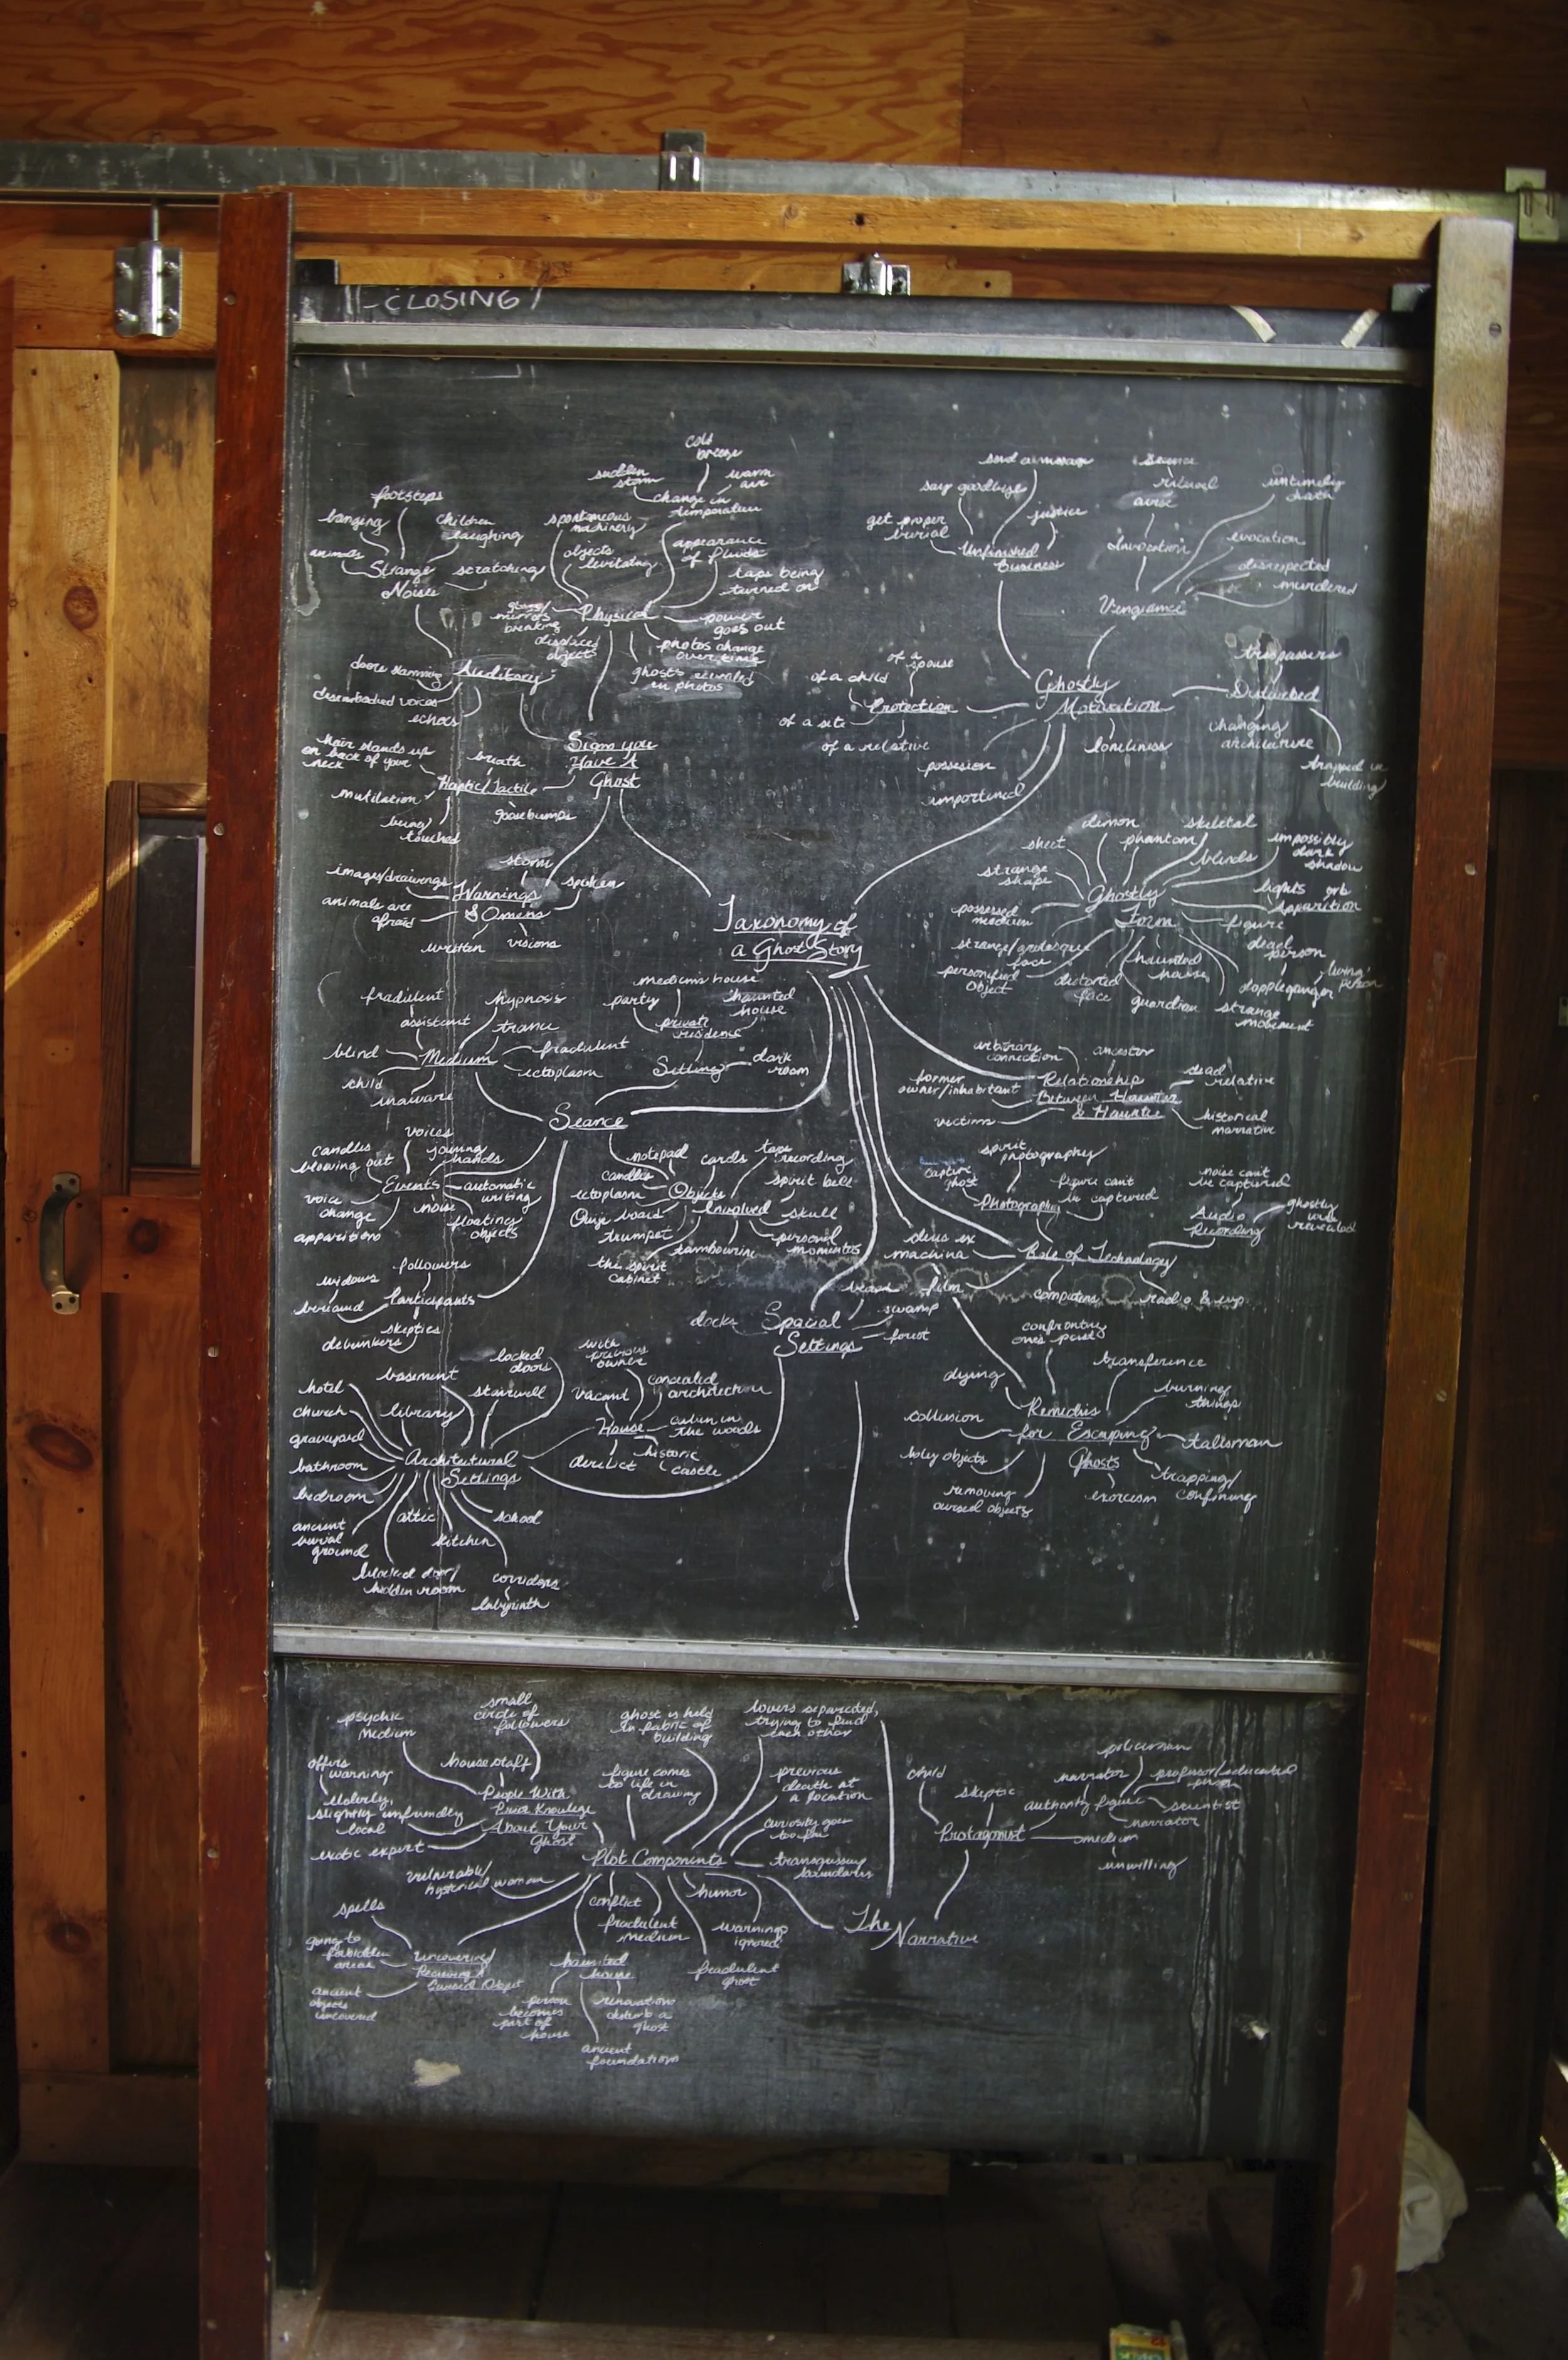 CLOSING
Taxonomy of
a Ghost Story
Signs you
Have A
Ghost
Physical
spontaneous
machinery
objects
levitating
sudden
storm
cold
breeze
warm
air
change in
temperature
appearance
of fluids
taps being
turned on
power
goes out
photos change
over time
ghosts revealed
in photos
displaced
object
glass/
mirrors
breaking
Auditory
Strange
Noises
footsteps
banging
children
laughing
animals
scratching
doors slamming
disembodied voices
echoes
Haptic/Tactile
hair stands up
on back of your
neck
breath
mutilation
being
touched
goosebumps
Warnings
& Omens
storm
spoken
image/drawings
animals are
afraid
written
visions
Ghostly
Motivation
Unfinished
Business
send a message
say goodbye
justice
get proper
burial
Vengeance
Invocation
seance
ritual
untimely
death
evocation
disrespected
murdered
Disturbed
trespassers
changing
architecture
trapped in
building
loneliness
Protection
of a child
of a
spouse
of a site
of a relative
possesion
Ghostly
Form
sheet
demon
phantom
skeletal
blinds
impossibly
dark
shadow
lights
orb
Apparition
figure
dead
person
living
person
dopple ganger
strange
movement
guardian
haunted
house
distorted
face
personified
object
strange/grotesque
face
possessed
medium
strange
shape
Relationship
Between Haunter
& Hauntee
arbitrary
connection
ancestor
dead
relative
historical
narrative
former
owner/inhabitant
victims
Seance
Medium
fradulent
assistant
hypnosis
trance
fradulent
ectoplasm
blind
child
unaware
Setting
dark
room
private
residence
party
medium's house
haunted
house
Events
voices
joining
hands
candles
blowing out
automatic
writing
voice
change
noise
floating
objects
apparition
Objects
Involved
notepad
cards
tape
recording
spirit bell
candles
ectoplasm
Ouija board
skull
trumpet
tambourine
personal
momentos
the spirit
cabinet
Participants
followers
widows
skeptics
debunkers
Role of Technology
Photography
spirit
photography
capture
ghost
figure can't
be captured
Audio
Recording
noise can't
be captured
ghostly
revealed
deus ex
machina
film
computers
radio & evp
Spacial
Settings
docks
swamp
forest
Architectural
Settings
hotel
church
graveyard
bathroom
bedroom
ancient
burial
ground
basement
library
stairwell
locked
doors
attic
kitchen
school
hidden room
corridors
labyrinth
House
vacant
with
previous
owner
concealed
architecture
cabin in
the woods
historic
castle
derelict
Remedies
for Escaping
Ghosts
confronting
one's past
transference
burning
things
talisman
trapping/
confining
exorcism
removing
cursed objects
holy objects
collusion
dying
The
Narrative
Protagonist
child
skeptic
authority figure
narrator
policeman
professor/educated
person
scientist
narrator
medium
unwilling
Plot Components
People With
Prior Knowlege
About Your
Ghost
psychic
medium
small
circle of
followers
house staff
offers
warning
elderly,
slightly unfriendly
local
exotic expert
ghost is held
in fabric of
building
figure comes
to life in
drawing
lovers separated,
trying to find
each other
previous
death at
a location
curiosity goes
too far
transgressing
boundaries
vulnerable/
hysterical woman
conflict
fradulent
medium
humor
warnings
ignored
fradulent
ghost
haunted
house
person
becomes
part of
house
renovations
disturb a
ghost
ancient
foundations
uncovering/
Receiving a
Cursed Object
spells
going to
forbidden
areas
ancient
objects
uncovered